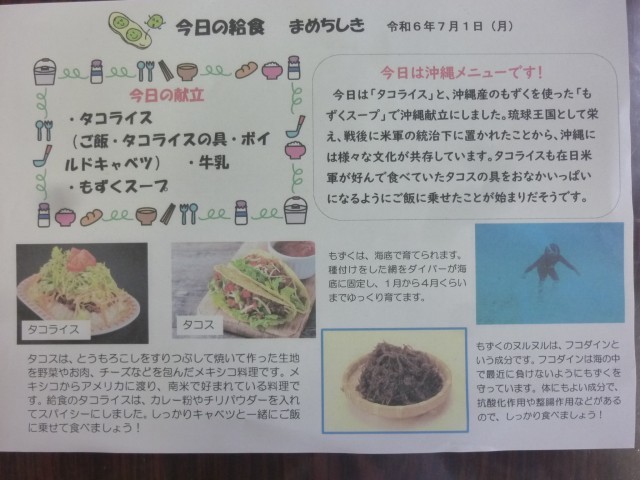 今日の給食　まめちしき　令和６年７月１日（月）
今日の献立
・タコライス
（ご飯・タコライスの具・ボイ
ルドキャベツ）　・牛乳
・もずくスープ
今日は沖縄メニューです！
今日は「タコライス」と、沖縄産のもずくを使った「も
ずくスープ」で沖縄献立にしました。琉球王国として栄
え、戦後に米軍の統治下に置かれたことから、沖縄に
は様々な文化が共存しています。タコライスも在日米
軍が好んで食べていたタコスの具をおなかいっぱい
になるようにご飯に乗せたことが始まりだそうです。
タコライス
タコス
タコスは、とうもろこしをすりつぶして焼いて作った生地
を野菜やお肉、チーズなどを包んだメキシコ料理です。メ
キシコからアメリカに渡り、南米で好まれている料理で
す。給食のタコライスは、カレー粉やチリパウダーを入れ
てスパイシーにしました。しっかりキャベツと一緒にご飯
に乗せて食べましょう！
もずくは、海底で育てられます。
種付けをした網をダイバーが海
底に固定し、１月から４月くらい
までゆっくり育てます。
もずくのヌルヌルは、フコダインと
いう成分です。フコダインは海の中
で最近に負けないようにもずくを
守っています。体にもよい成分で、
抗酸化作用や整腸作用などがある
ので、しっかり食べましょう！